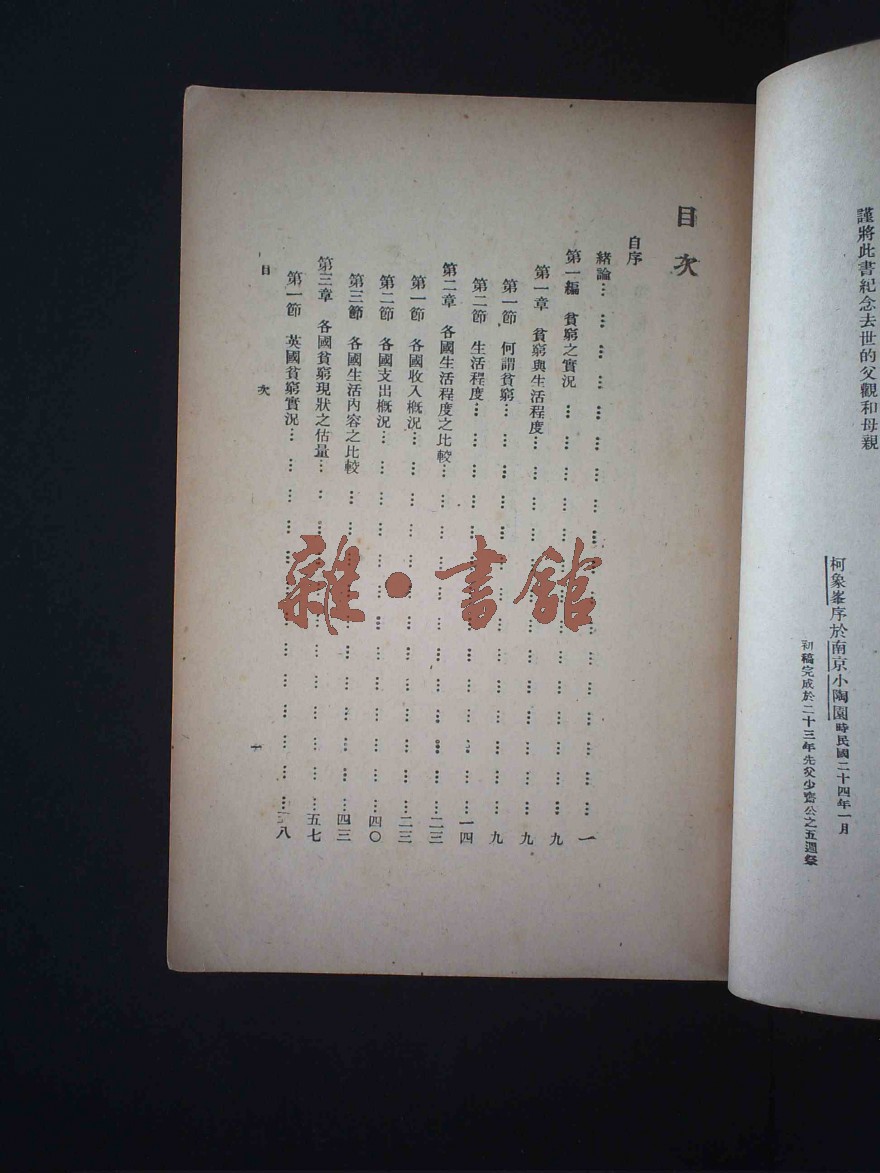 謹將此書紀念去世的父觀和母親
柯象峯序於南京小陶園時民國二十四年一月
初稿完成於二十三年先父少齋公之五週祭
目次
自序
緒論… … … … … … … … … … … … … … … … 一
第一編 貧窮之實況 … … … … … … … … … … … … 九
第一章 貧窮與生活程度… … … … … … … … … … … 九
第一節 何謂貧窮… … … … … … … … … … … … 九
第二節 生活程度… … … … … … … … … … … … 一四
第二章 各國生活程度之比較… … … … … … … … … … 二三
第一節 各國收入概況… … … … … … … … … … … 二三
第二節 各國支出概況… … … … … … … … … … … 四〇
第三節 各國生活內容之比較 … … … … … … … … … 四三
第三章 各國貧窮現狀之估量… … … … … … … … … … 五七
第一節 英國貧窮實況… … … … … … … … … … … 八
目次
雜·書館